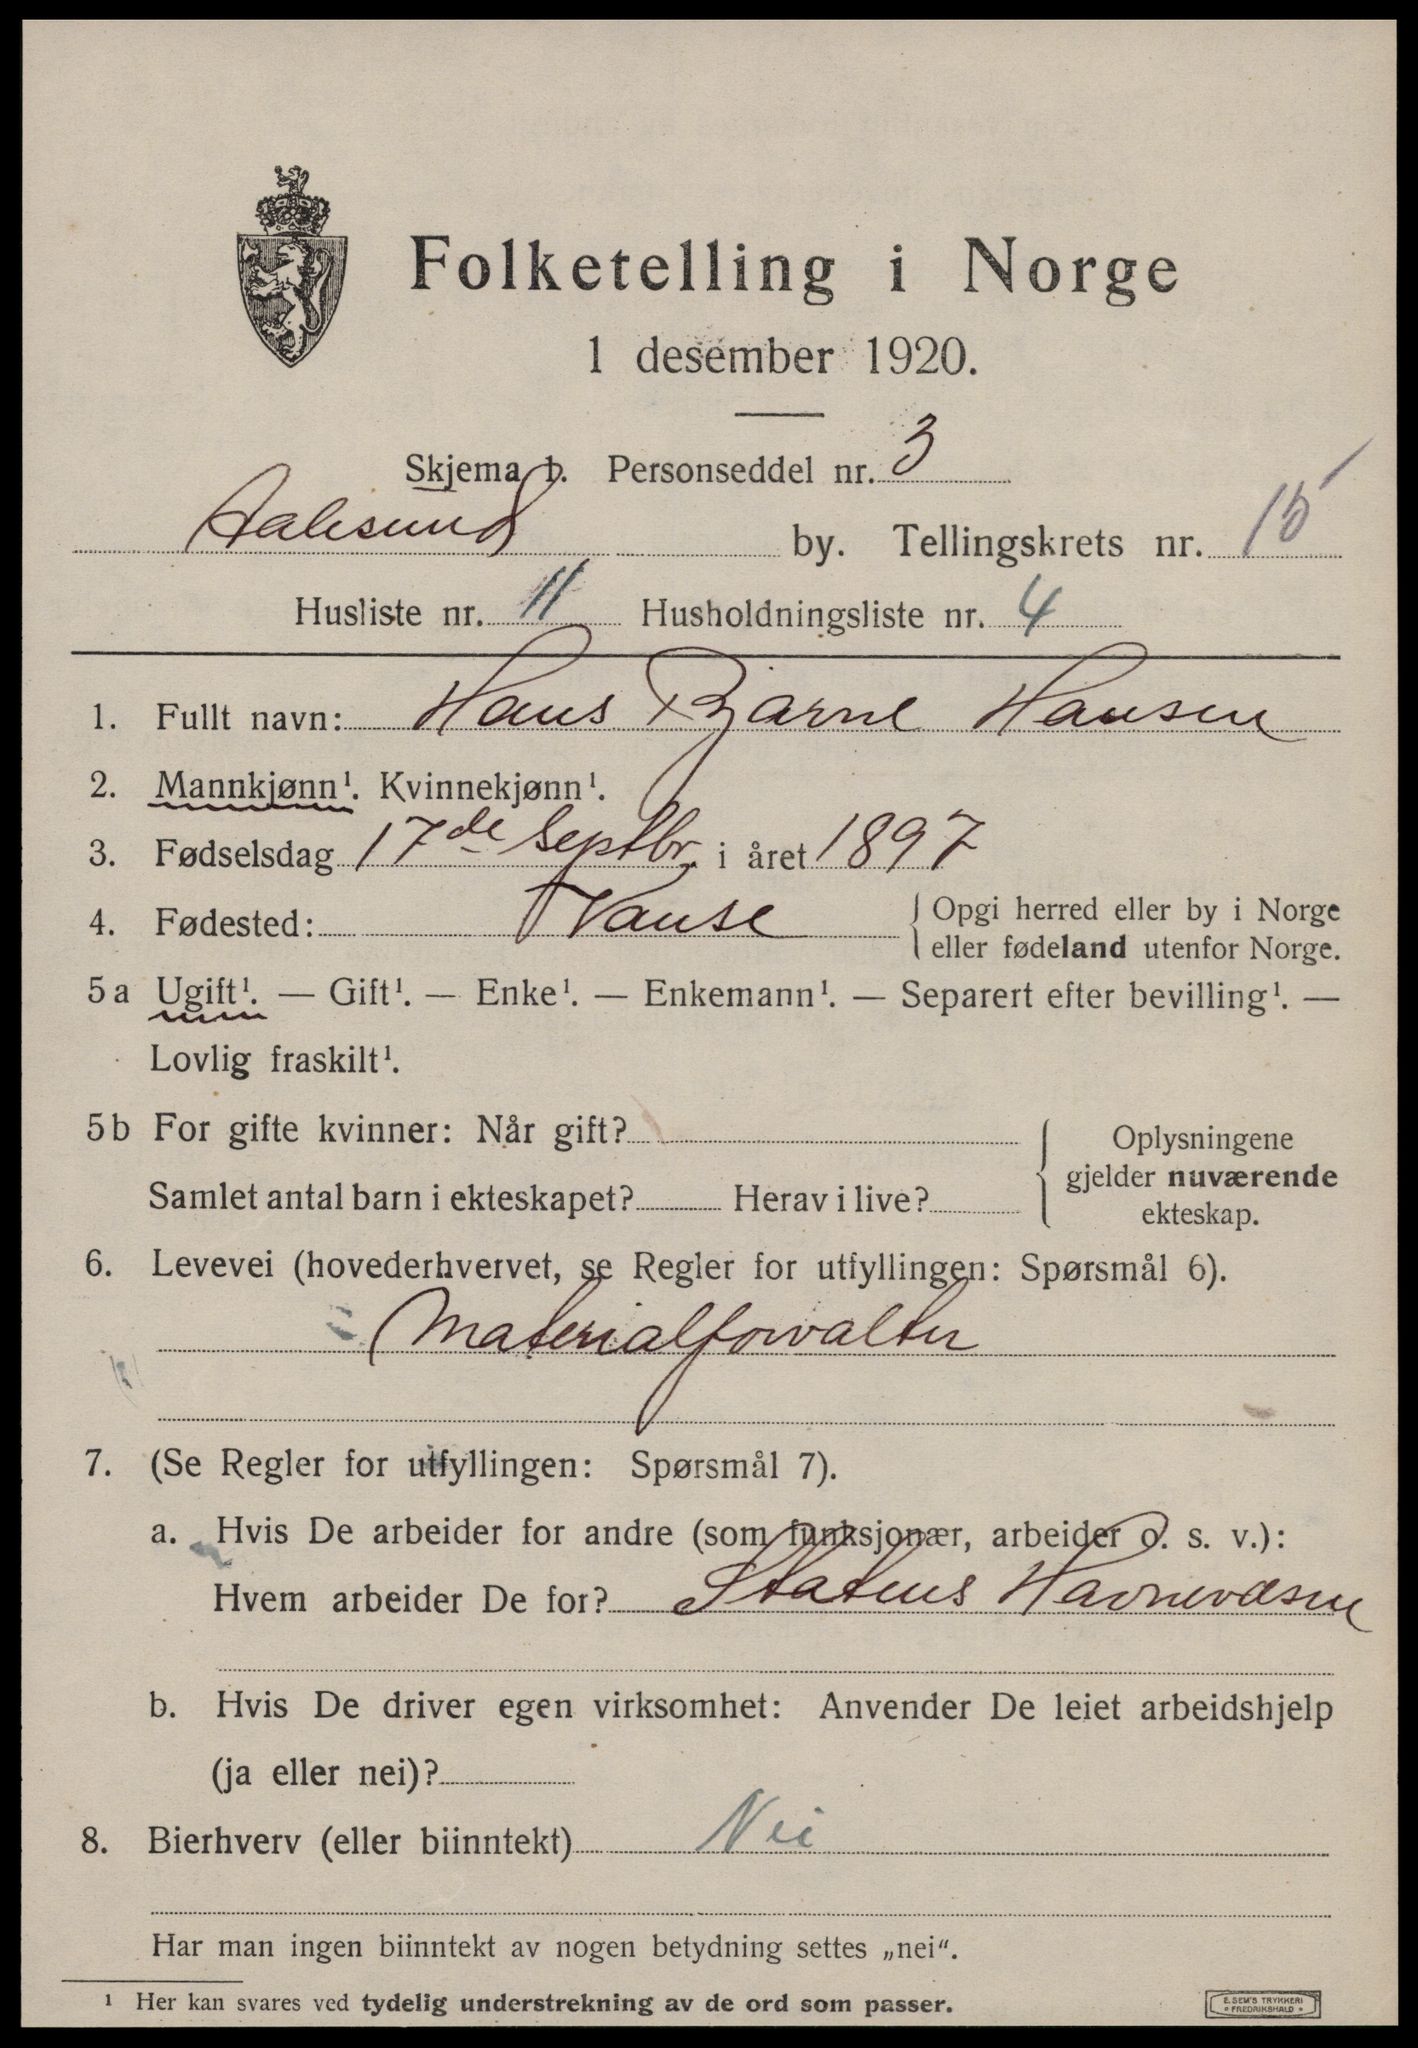 Folketelling i Norge
1 desember 1920.
Skjema 1. Personseddel nr. 3
Aalesund by. Tellingskrets nr. 15
Husliste nr. 11 Husholdningsliste nr. 4
1. Fullt navn: Hans Bjarne Hansen
2. Mannkjønn¹. Kvinnekjønn¹.
3. Fødselsdag 17de Septbr. i året 1897
4. Fødested: Vanse { Opgi herred eller by i Norge
eller fødeland utenfor Norge.
5a Ugift¹. — Gift¹. — Enke¹. — Enkemann¹. — Separert efter bevilling¹. —
Lovlig fraskilt¹.
5b For gifte kvinner: Når gift?
Samlet antal barn i ekteskapet? Herav i live?
Oplysningene
gjelder nuværende
ekteskap.
6. Levevei (hovederhvervet, se Regler for utfyllingen: Spørsmål 6).
Materialforvalter
7. (Se Regler for utfyllingen: Spørsmål 7).
a. Hvis De arbeider for andre (som funksjonær, arbeider o. s. v.):
Hvem arbeider De for? Statens Havnevæsen
b. Hvis De driver egen virksomhet: Anvender De leiet arbeidshjelp
(ja eller nei)?
8. Bierhverv (eller biinntekt) Nei
Har man ingen biinntekt av nogen betydning settes „nei“.
¹ Her kan svares ved tydelig understrekning av de ord som passer.
E. SEM'S TRYKKERI
* FREDRIKSHALD *